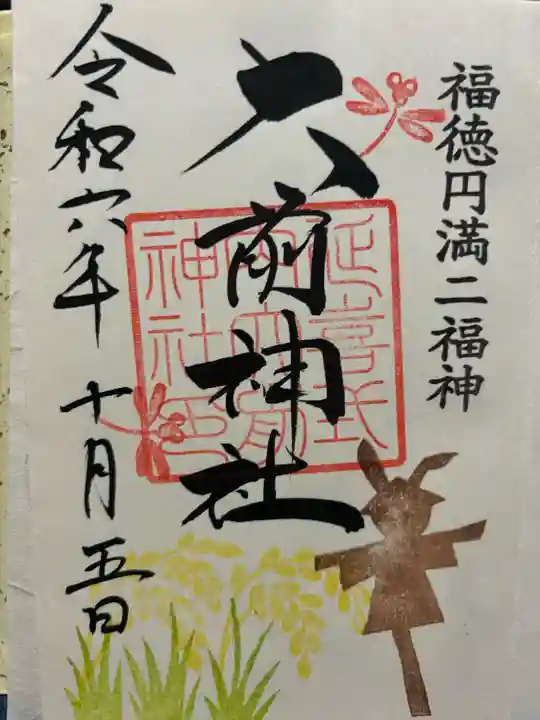 福徳円満二福神
大前神社
延喜式
内大前
神社印
令和六年十月五日